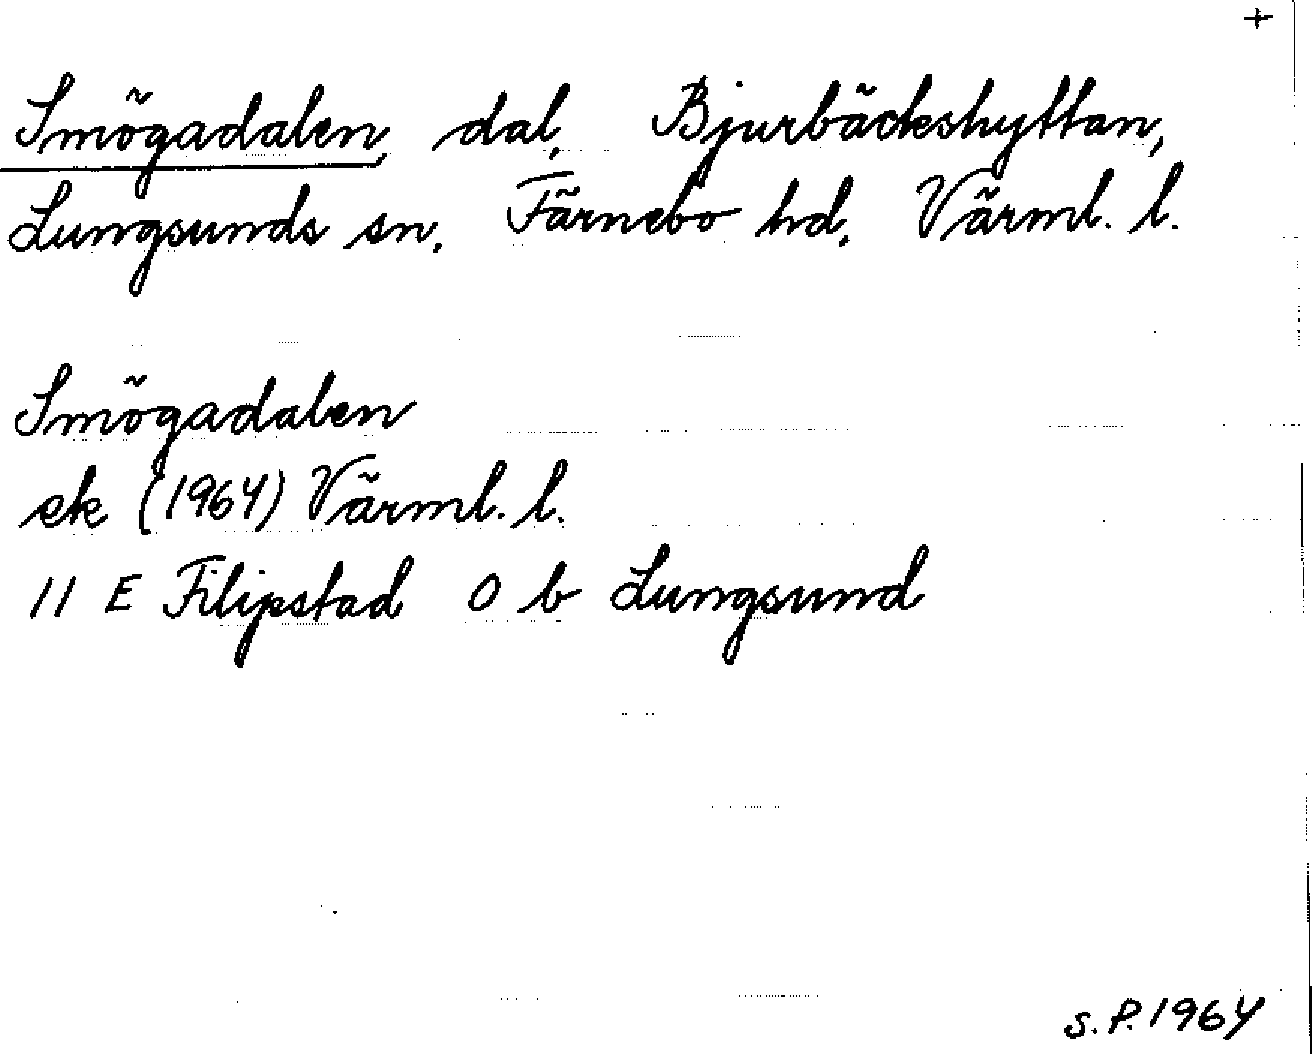 +
Smögadalen, dal, Bjurbäckshyttan,
Lungsunds sn. Färnebo hd. Värml. l.
Smögadalen
ek (1964) Värml. l.
11 E Filipstad 0 b Lungsund
S.P. 1964